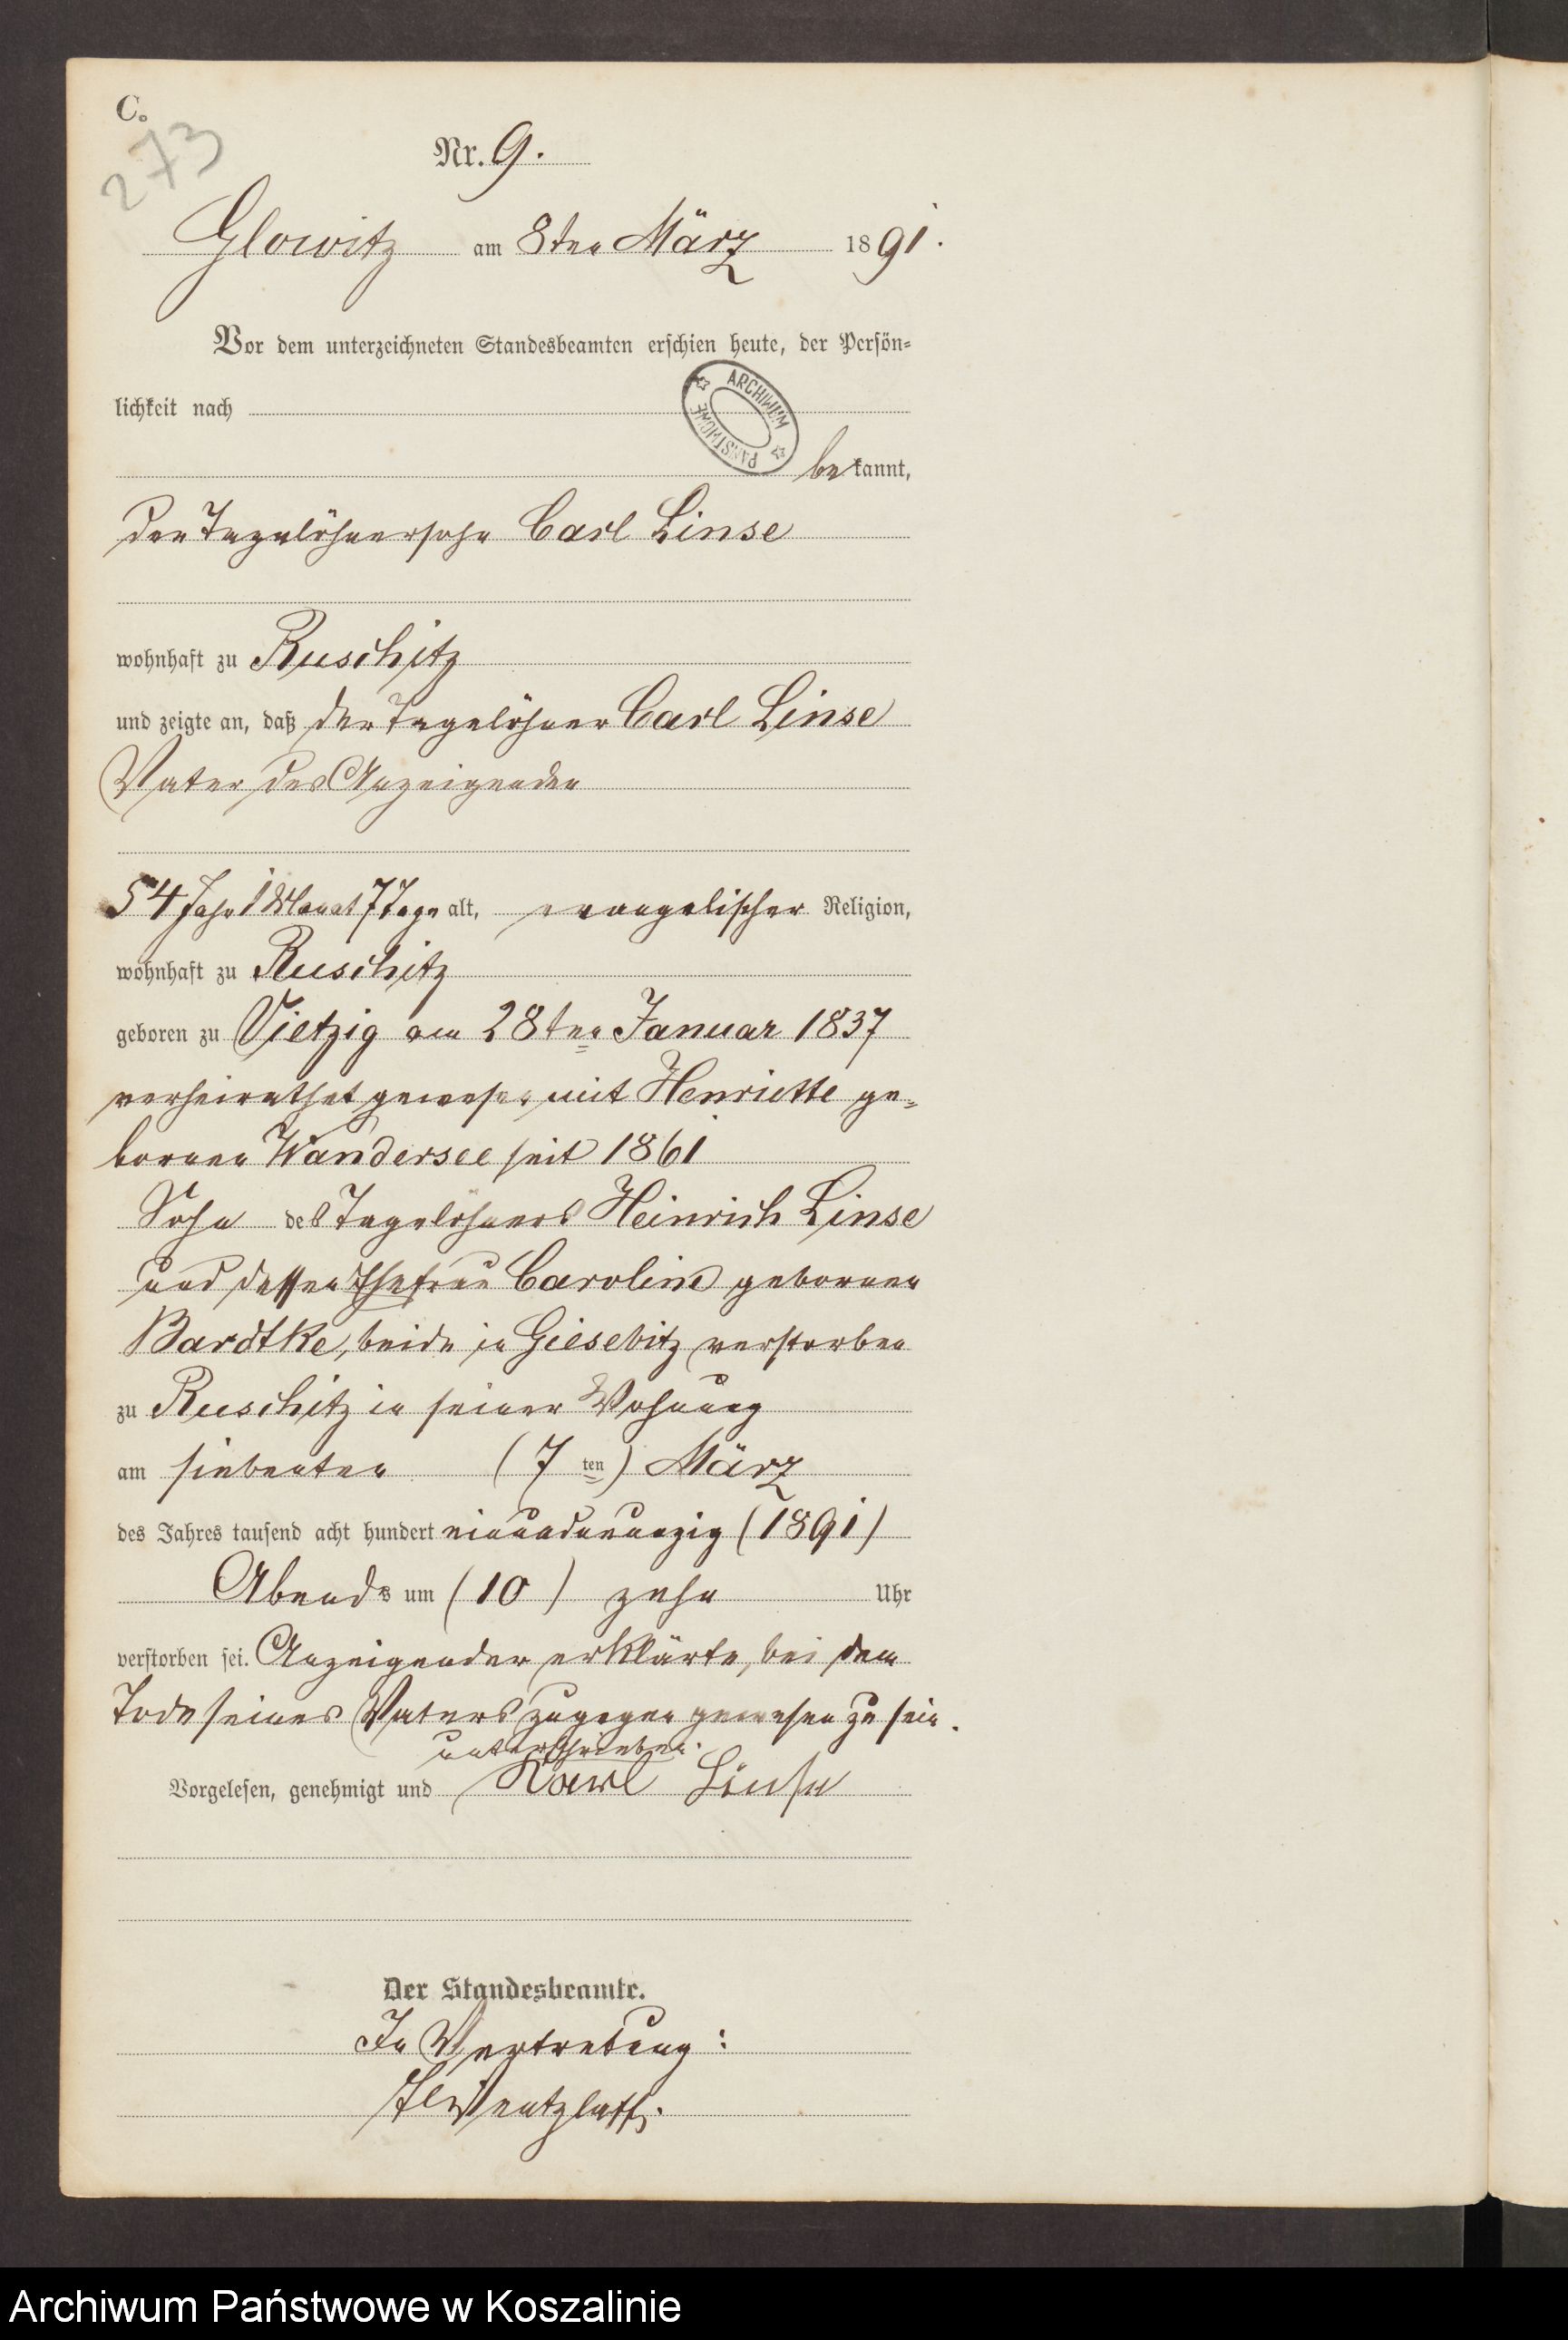 C.
273
Nr. 9.
Glowitz am 8ten März 1891.
Vor dem unterzeichneten Standesbeamten erschien heute, der Persön-
lichkeit nach
ARCHIWUM PAŃSTWOWE
bekannt,
der Tagelöhnersohn Carl Linse
wohnhaft zu Ruschitz
und zeigte an, daß der Tagelöhner Carl Linse
Vater des Anzeigenden
54 Jahr 1 Monat 7 Tage alt, evangelischer Religion,
wohnhaft zu Ruschitz
geboren zu Vietzig am 28ten Januar 1837
verheirathet gewesen mit Henriette ge-
bornen Wandersee seit 1861
Sohn des Tagelöhners Heinrich Linse
und dessen Ehefrau Caroline gebornen
Bardtke, beide in Giesebitz verstorben
zu Ruschitz in seiner Wohnung
am siebenten (7 ten) März
des Jahres tausend acht hundert einundneunzig (1891)
Abends um (10) zehn Uhr
verstorben sei. Anzeigender erklärte, bei dem
Tode seines Vaters zugegen gewesen zu sein.
unterschrieben.
Vorgelesen, genehmigt und Karl Linse
Der Standesbeamte.
In Vertretung:
Wentzlaff.
Archiwum Państwowe w Koszalinie